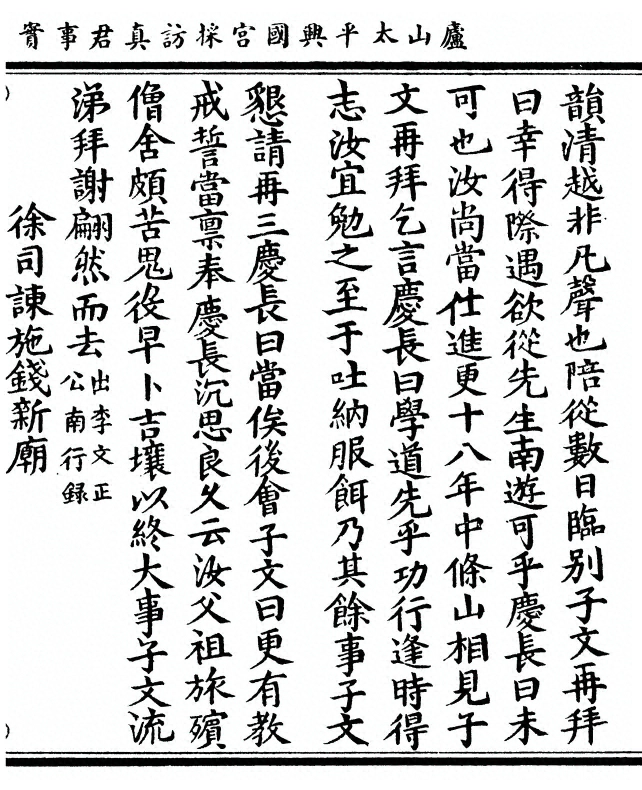 廬山太平興國宮採訪真君事實
韻清越非凡聲也陪從數日臨别子文再拜
曰幸得際遇欲從先生南遊可乎慶長曰未
可也汝尚當仕進更十八年中條山相見子
文再拜乞言慶長曰學道先乎功行逢時得
志汝宜勉之至于吐納服餌乃其餘事子文
懇請再三慶長曰當俟後會子文曰更有教
戒誓當禀奉慶長沉思良久云汝父祖旅殯
僧舍頗苦鬼役早卜吉壤以終大事子文流
涕拜謝翩然而去出李文正公南行録
徐司諫施錢新廟